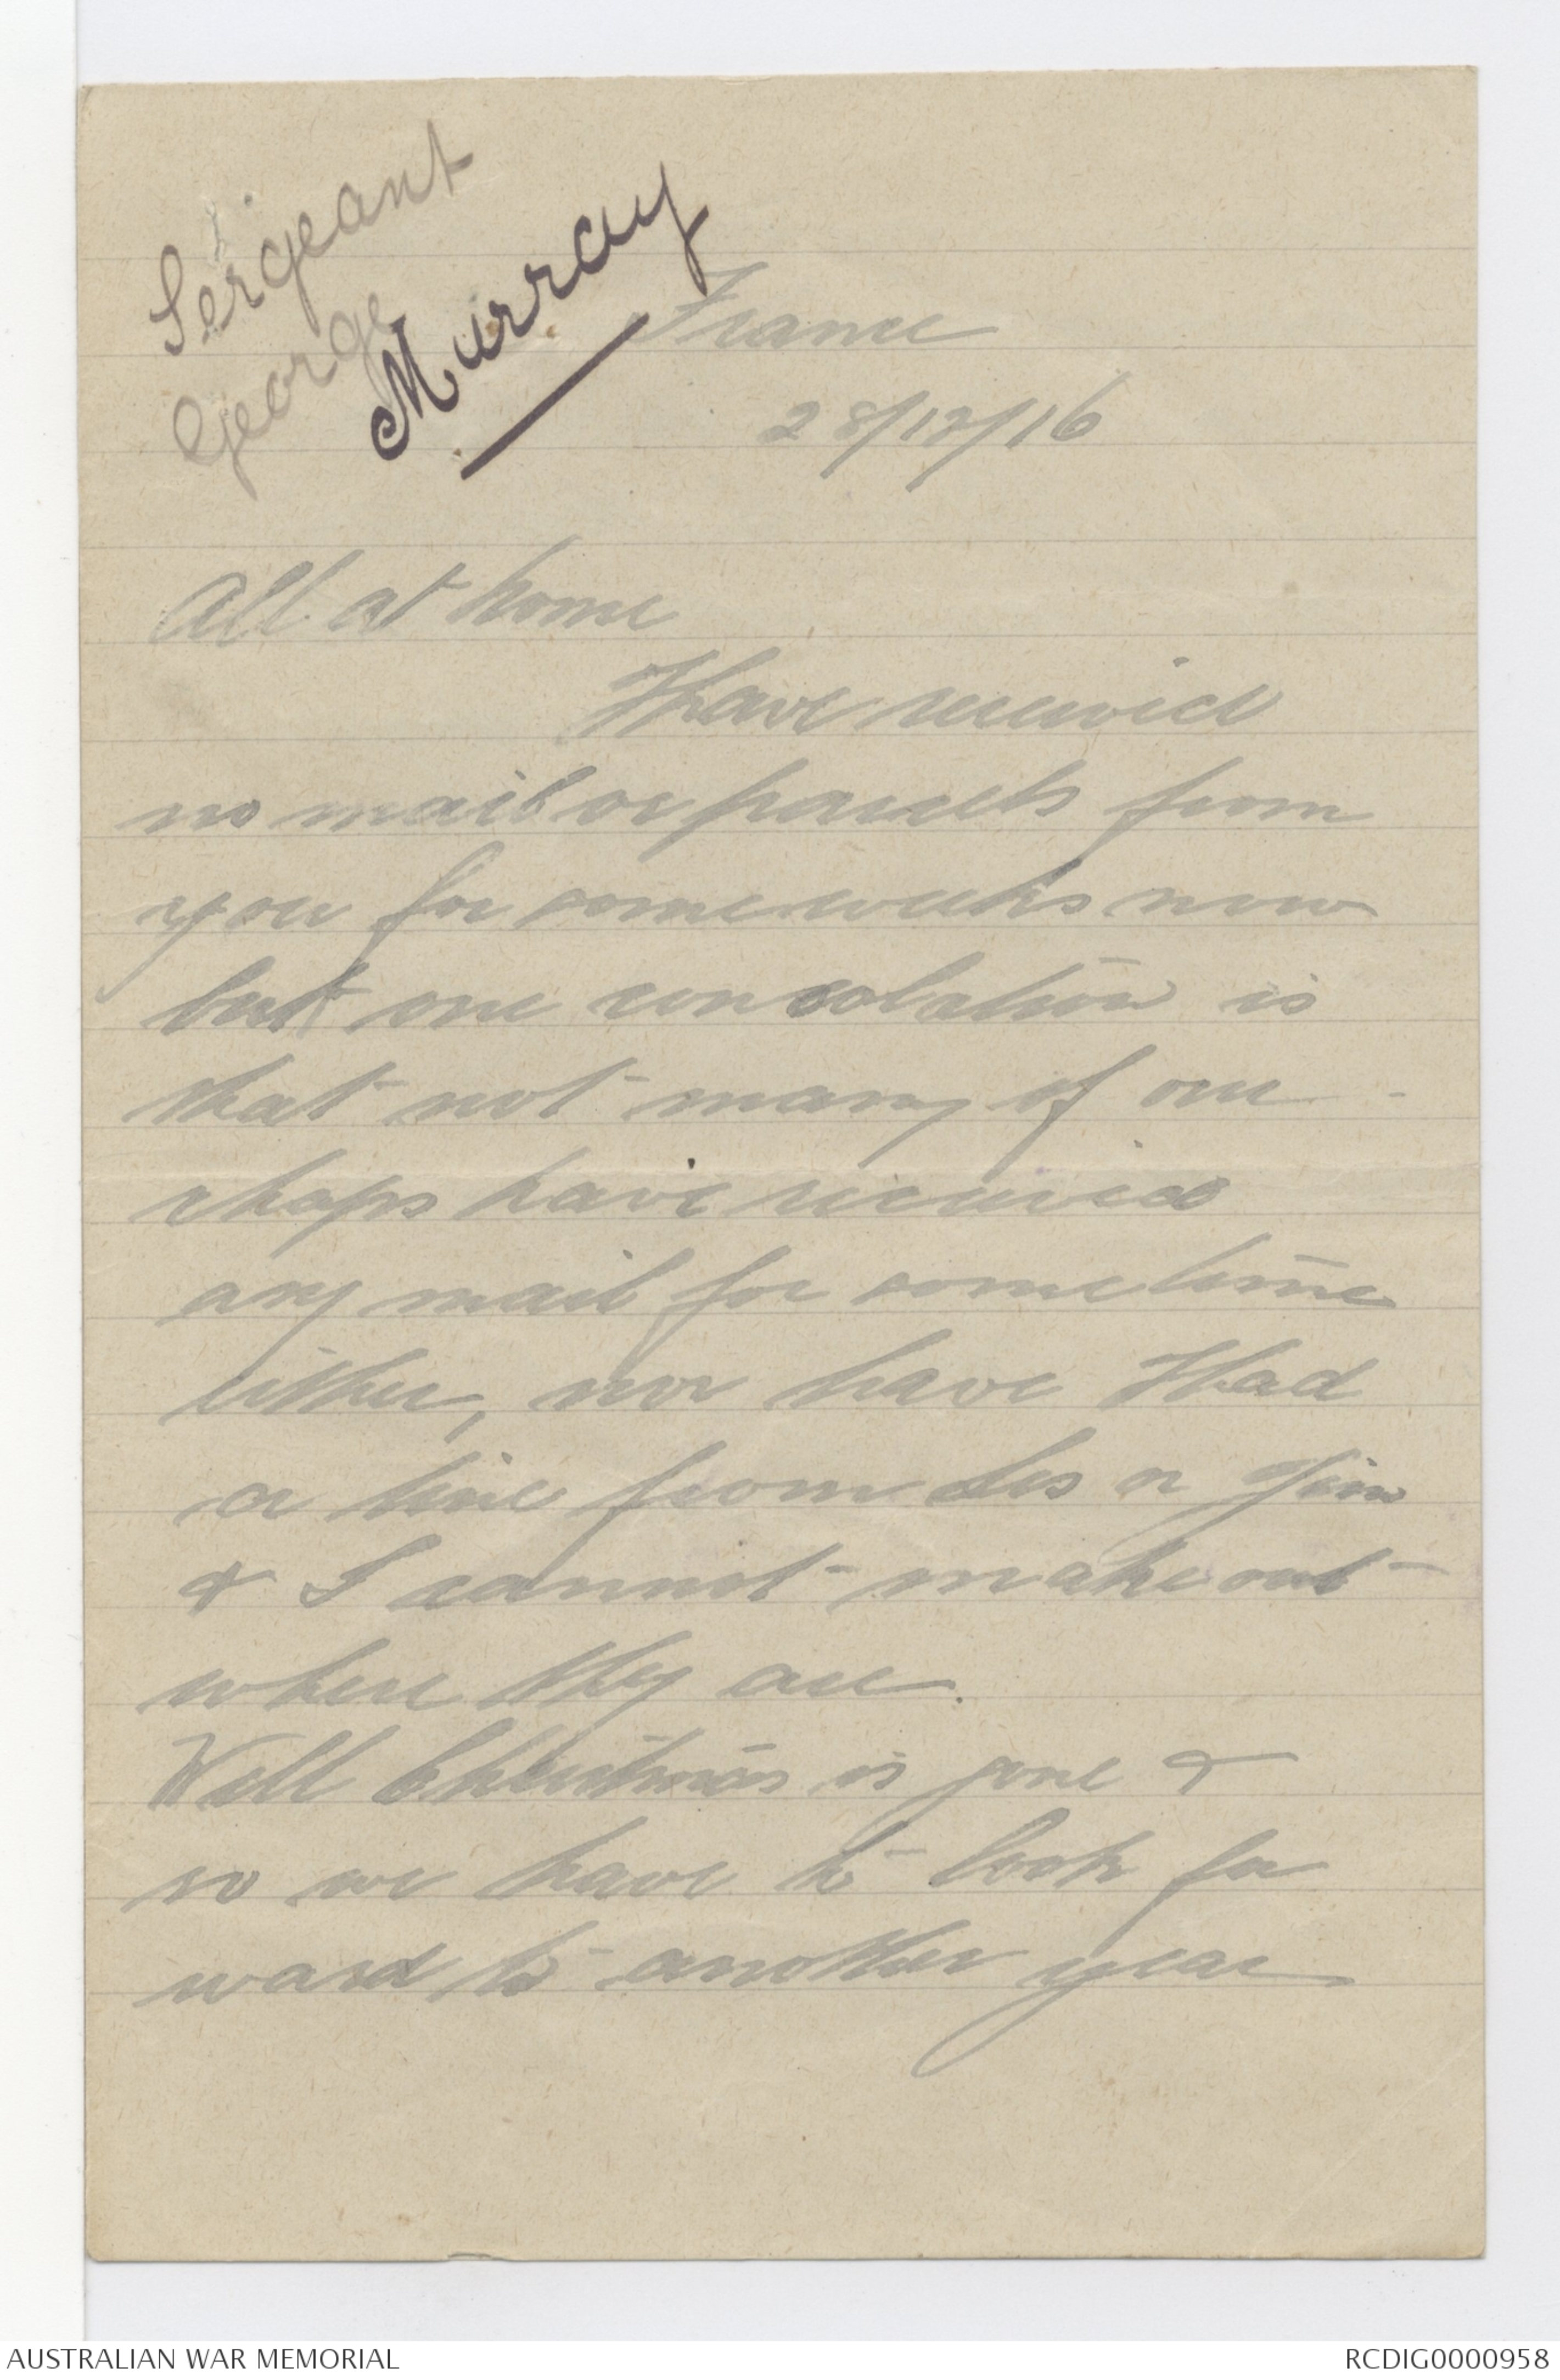 Sergeant
George
Murray
France
28/12/16
All at home
I have received
no mail or parcels from
you for some weeks now
but one consolation is
that not many of our
chaps have received
any mail for sometime
either, nor have I had
a line from Les or Jim
& I cannot make out
where they are.
Well Christmas is gone &
so we have to look for
ward to another year
AUSTRALIAN WAR MEMORIAL
RCDIG0000958